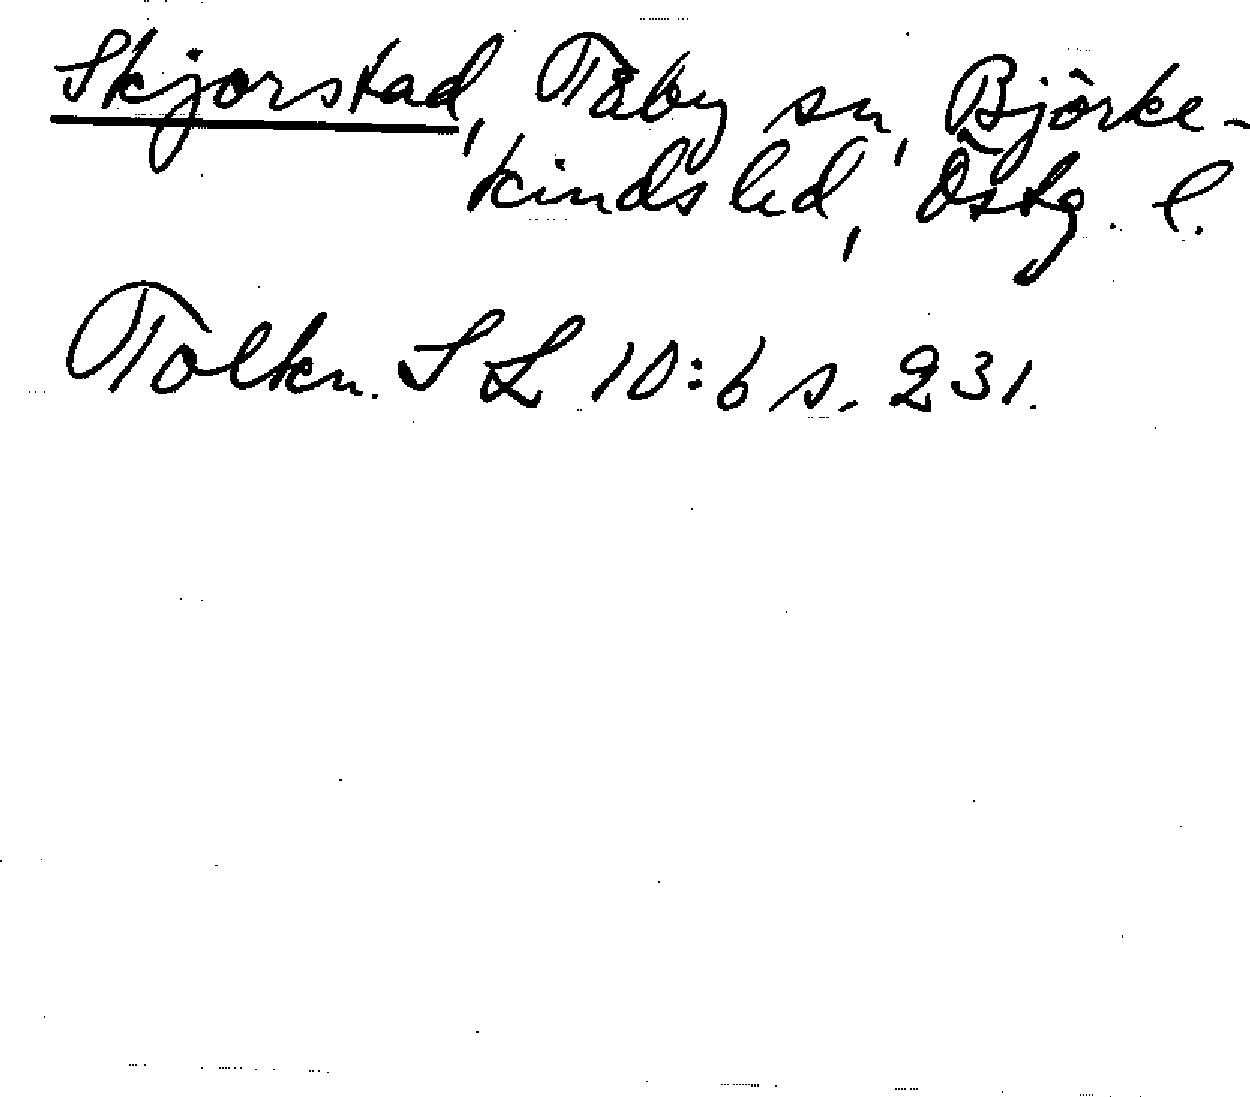 Skjorstad, Tåby sn, Björke-
kinds hd, Östg. l.
Tolkn. SL 10:6 s. 231.